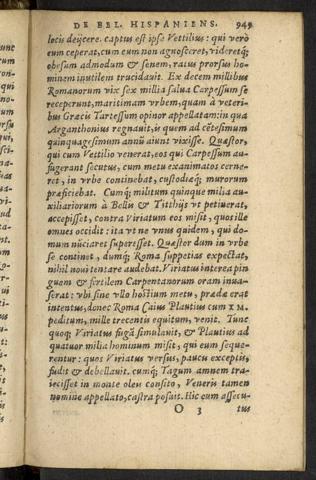 DE BEL. HISPANIENS. 949
locis deijcere. captus est ipse Vettilius: qui verò
eum ceperat, cum eum non agnosceret, videretq́;
obesum admodum & senem, ratus prorsus ho-
minem inutilem trucidauit. Ex decem millibus
Romanorum vix sex millia salua Carpessum se
receperunt, maritimam vrbem, quam à veteri-
bus Græcis Tartessum opinor appellatam: in qua
Arganthonius regnauit, is quem ad cẽtesimum
quinquagesimum annũ aiunt vixisse. Quæstor,
qui cum Vettilio venerat, eos qui Carpessum au-
fugerant secutus, cum metu exanimatos cerne-
ret, in vrbe continebat, custodiaq́; murorum
præficiebat. Cumq́; militum quinque milia au-
xiliariorum à Bellis & Titthijs vt petiuerat,
accepisset, contra Viriatum eos misit, quos ille
omues occidit: ita vt ne vnus quidem, qui do-
mum nũciaret superesset. Quæstor dum in vrbe
se continet, dumq́; Roma suppetias expectat,
nihil noui tentare audebat. Viriatus interea pin
guem & fertilem Carpentanorum oram inua-
serat: vbi sine vllo hostium metu, prædæ erat
intentus, donec Roma Caius Plautius cum X M.
peditum, mille trecentu equitum, venit. Tunc
quoq́; Viriatus fugã simulauit, & Plautius ad
quatuor milia hominum misit, qui eum seque-
rentur: ques Viriatus versus, paucu exceptis,
fudit & debellauit. cumq́; Tagum amnem tra-
iecisset in monte oleis consito, Veneris tamen
nomine appellato, castra posuit. Hic eum assecu-
O 3 tus